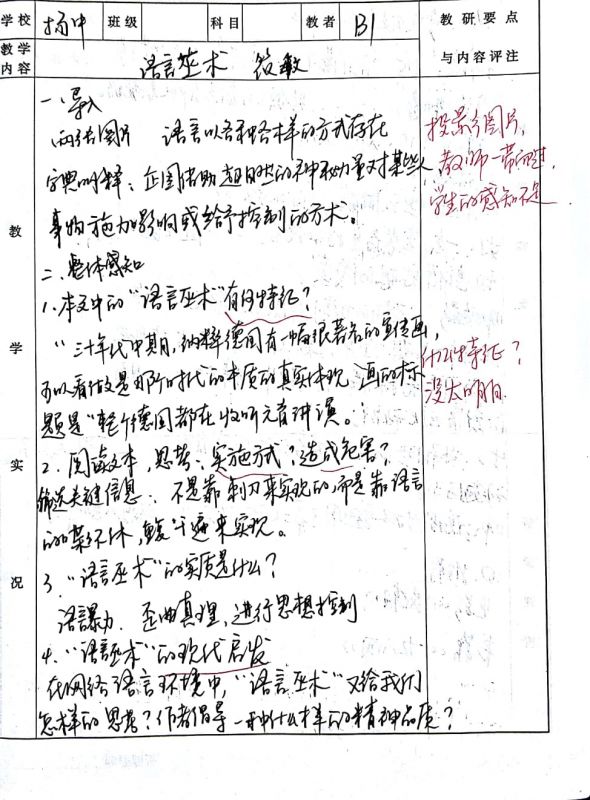 学校 扬中 班级 科目 教者 B1 教研要点
与内容评注
教学内容 语言巫术 筱敏
教学实况
一、导入
两张图片 语言以各种各样的方式存在
字典叫释：企图借助超自然的神秘力量对某些
事物施加影响或给予控制的方术。
二、整体感知
1.本文中的“语言巫术”有何特征？
“三十年代中期，纳粹德国有一幅很著名的宣传画，
可以看做是那阶时代的本质的真实体现，画的标
题是“整个德国都在收听元首讲演。”
2.阅读文本，思考：实施方式？造成危害？
筛选关键信息：不是靠刺刀来实现的，而是靠语言
的 来实现。
3.“语言巫术”的实质是什么？
语言暴力、歪曲真理、进行思想控制
4.“语言巫术”的现代启发
在网络语言环境中，“语言巫术”又给我们
怎样的思考？作者倡导一种什么样的精神品质？
投影了图片，
教师一带而过，
学生的感知不足
什么特征？
没太明白